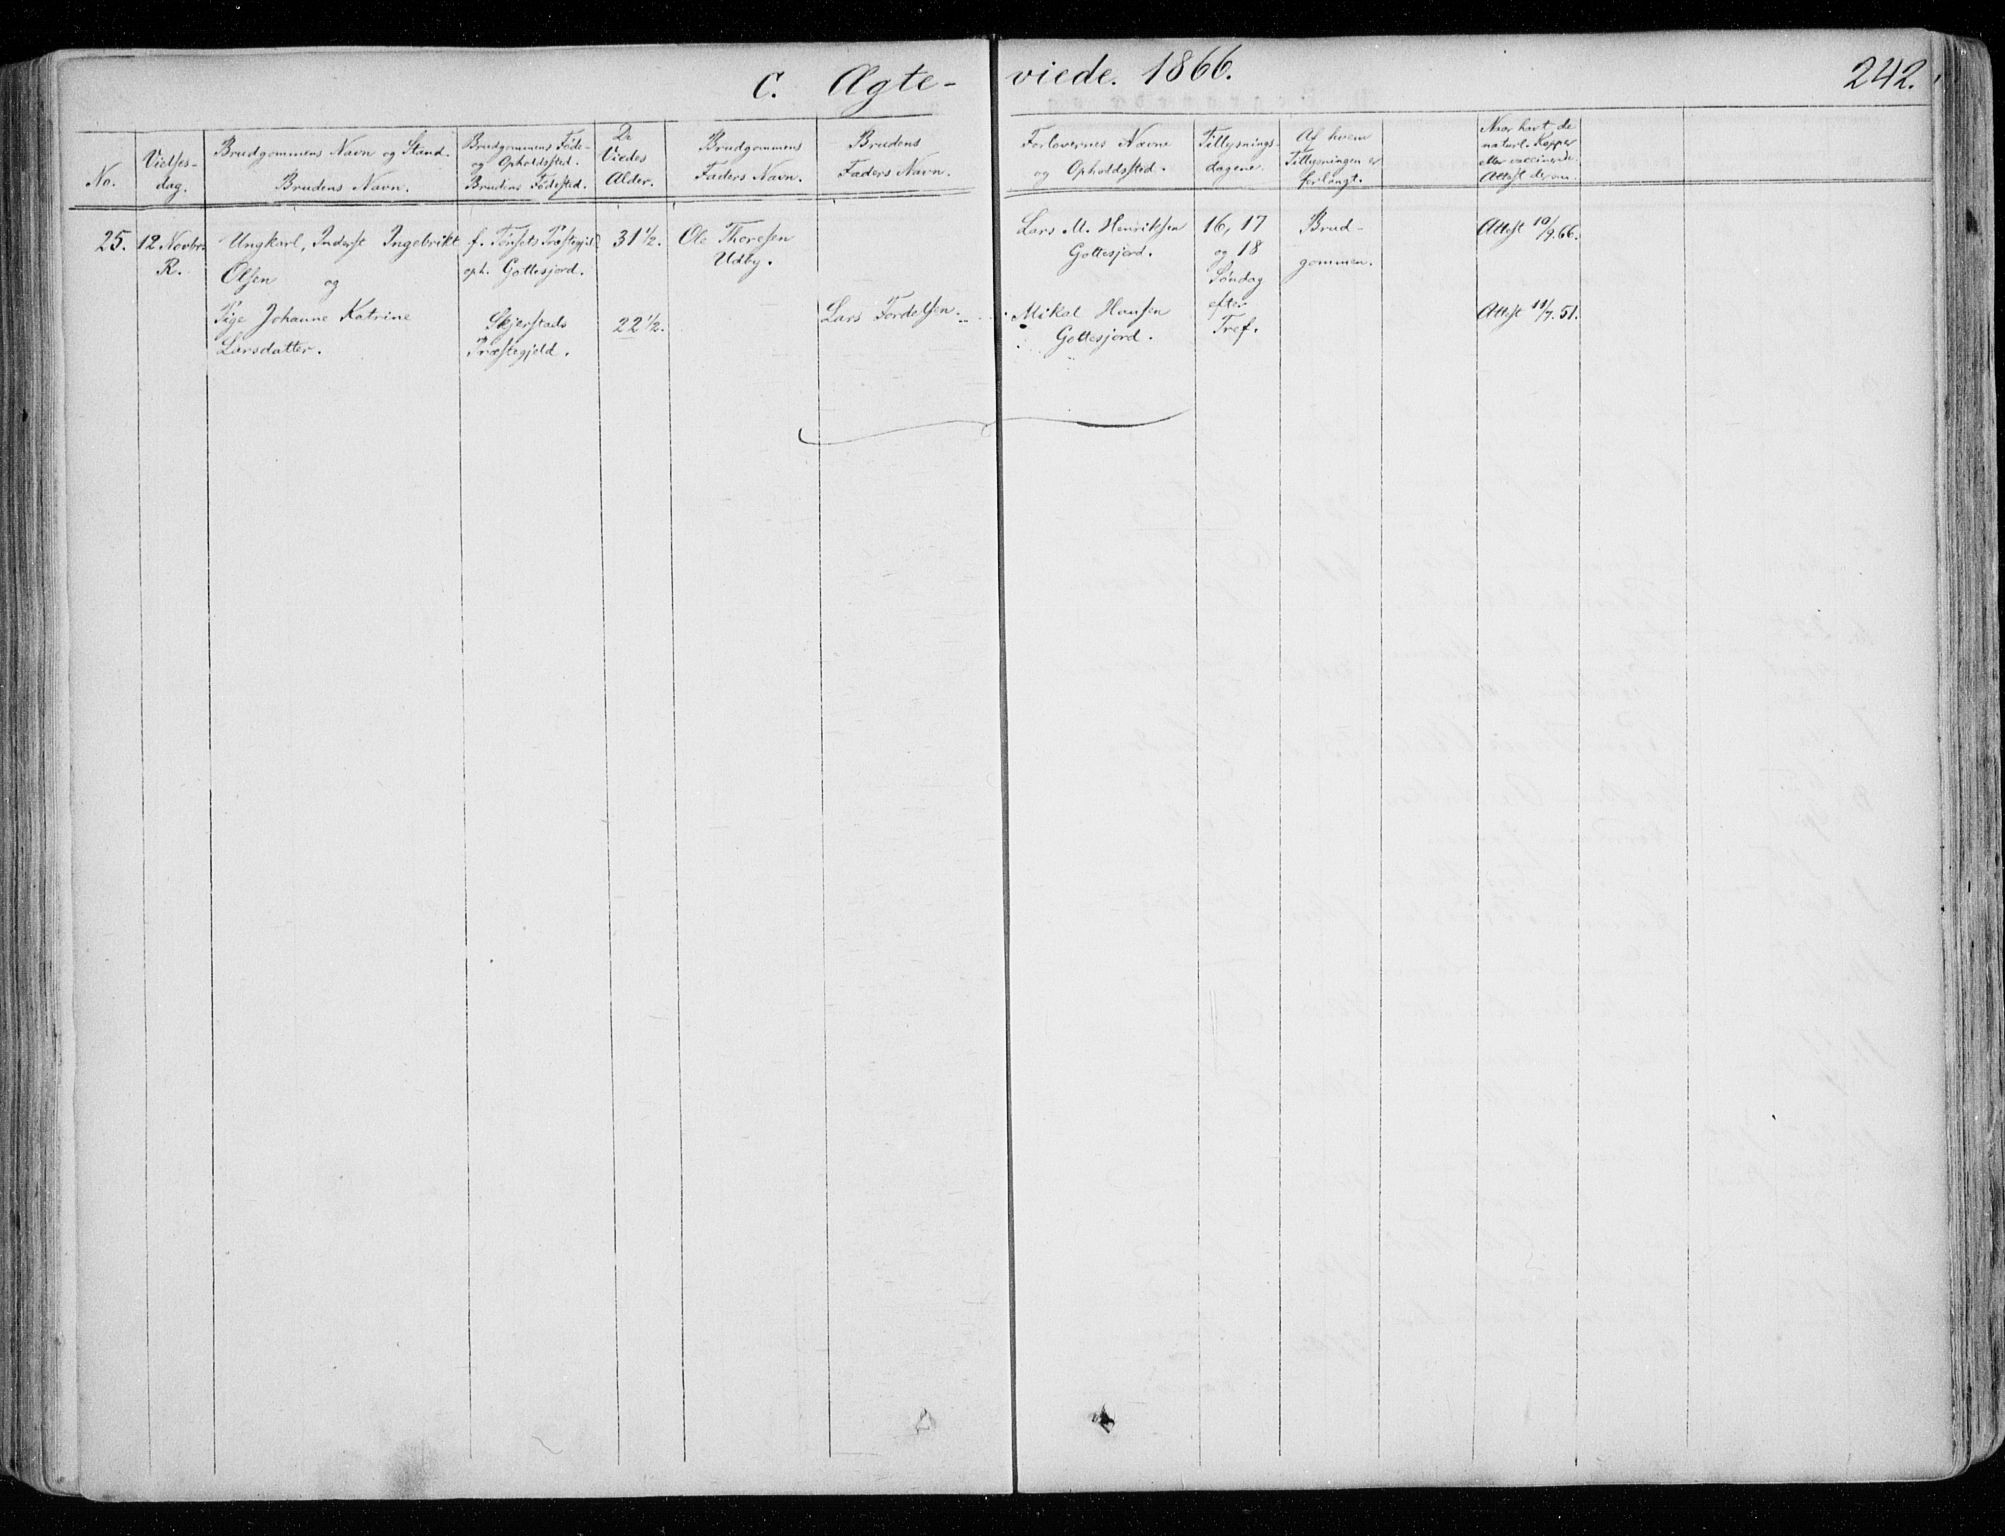 C. Ægte- viede. 1866. 242.
No.
Vielses-
dag.
Brudgommens Navn og Stand.
Brudens Navn.
Brudgommens Føde-
og Opholdssted.
Brudens Fødested.
De
Viedes
Alder.
Brudgommens
Faders Navn.
Brudens
Faders Navn.
Forlovernes Navne
og Opholdssted.
Tillysnings-
dagene.
Af hvem
Tillysningen er
forlangt.
Naar havt de
naturl. Kopper
eller vaccinerede.
Attest derom.
25.
12 Novbr.
R.
Ungkarl, Inderst Ingebrikt
Olsen og
Pige Johanne Katrine
Larsdatter.
f. Tønsets Præstegjld
oph. Gottesjord.
Skjerstads
Præstegjeld.
31 1/2.
22 1/2.
Ole Thoresen
Udby.
Lars Tordelsen.
Lars M. Henriksen
Gottesjord.
Mikal Hansen
Gottesjord.
16, 17
og 18
Søndag
efter
Tref.
Brud-
gommen.
Attest 10/9.66.
Attest 11/7.51.